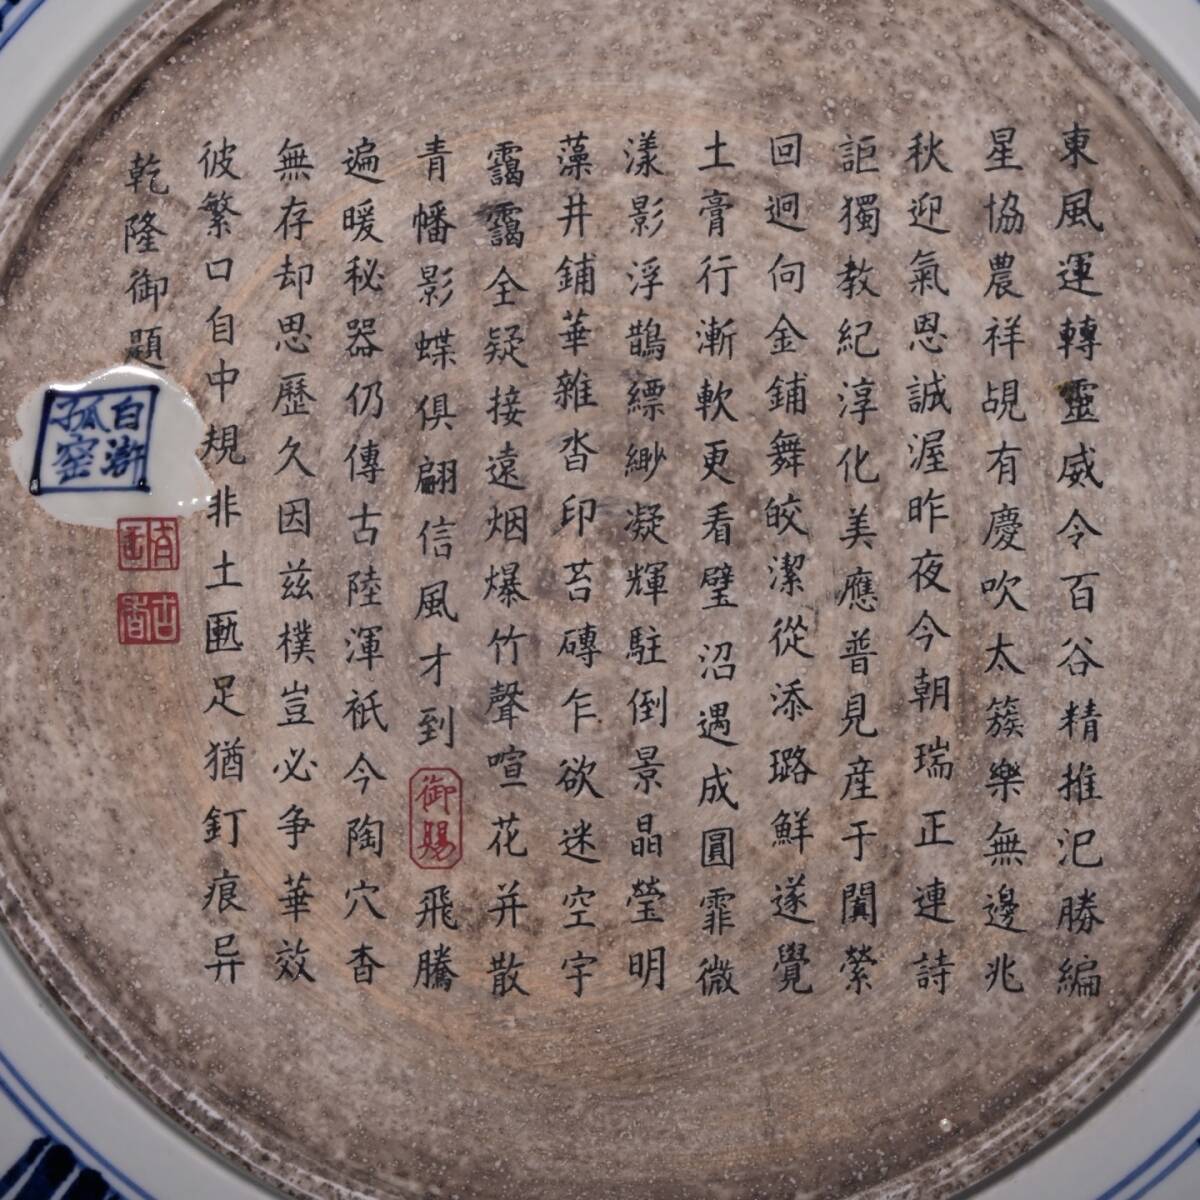 東風運轉靈威令百谷精推汜勝編
星協農祥覘有慶吹太簇樂無邊兆
秋迎氣恩誠渥昨夜今朝瑞正連詩
詎獨教紀淳化美應普見産于闐縈
回迥向金鋪舞皎潔從添璐鮮遂覺
土膏行漸軟更看璧沼遇成圓霏微
漾影浮鵲縹緲凝輝駐倒景晶瑩明
藻井鋪華雜沓印苔磚乍欲迷空宇
靄靄全疑接遠烟爆竹聲喧花并散
青幡影蝶俱翩信風才到御賜飛騰
遍暖秘器仍傳古陸渾祇今陶穴杳
無存却思歷久因茲樸豈必爭華效
彼繁口自中規非土匭足猶釘痕异
乾隆御題
白滸孤窑